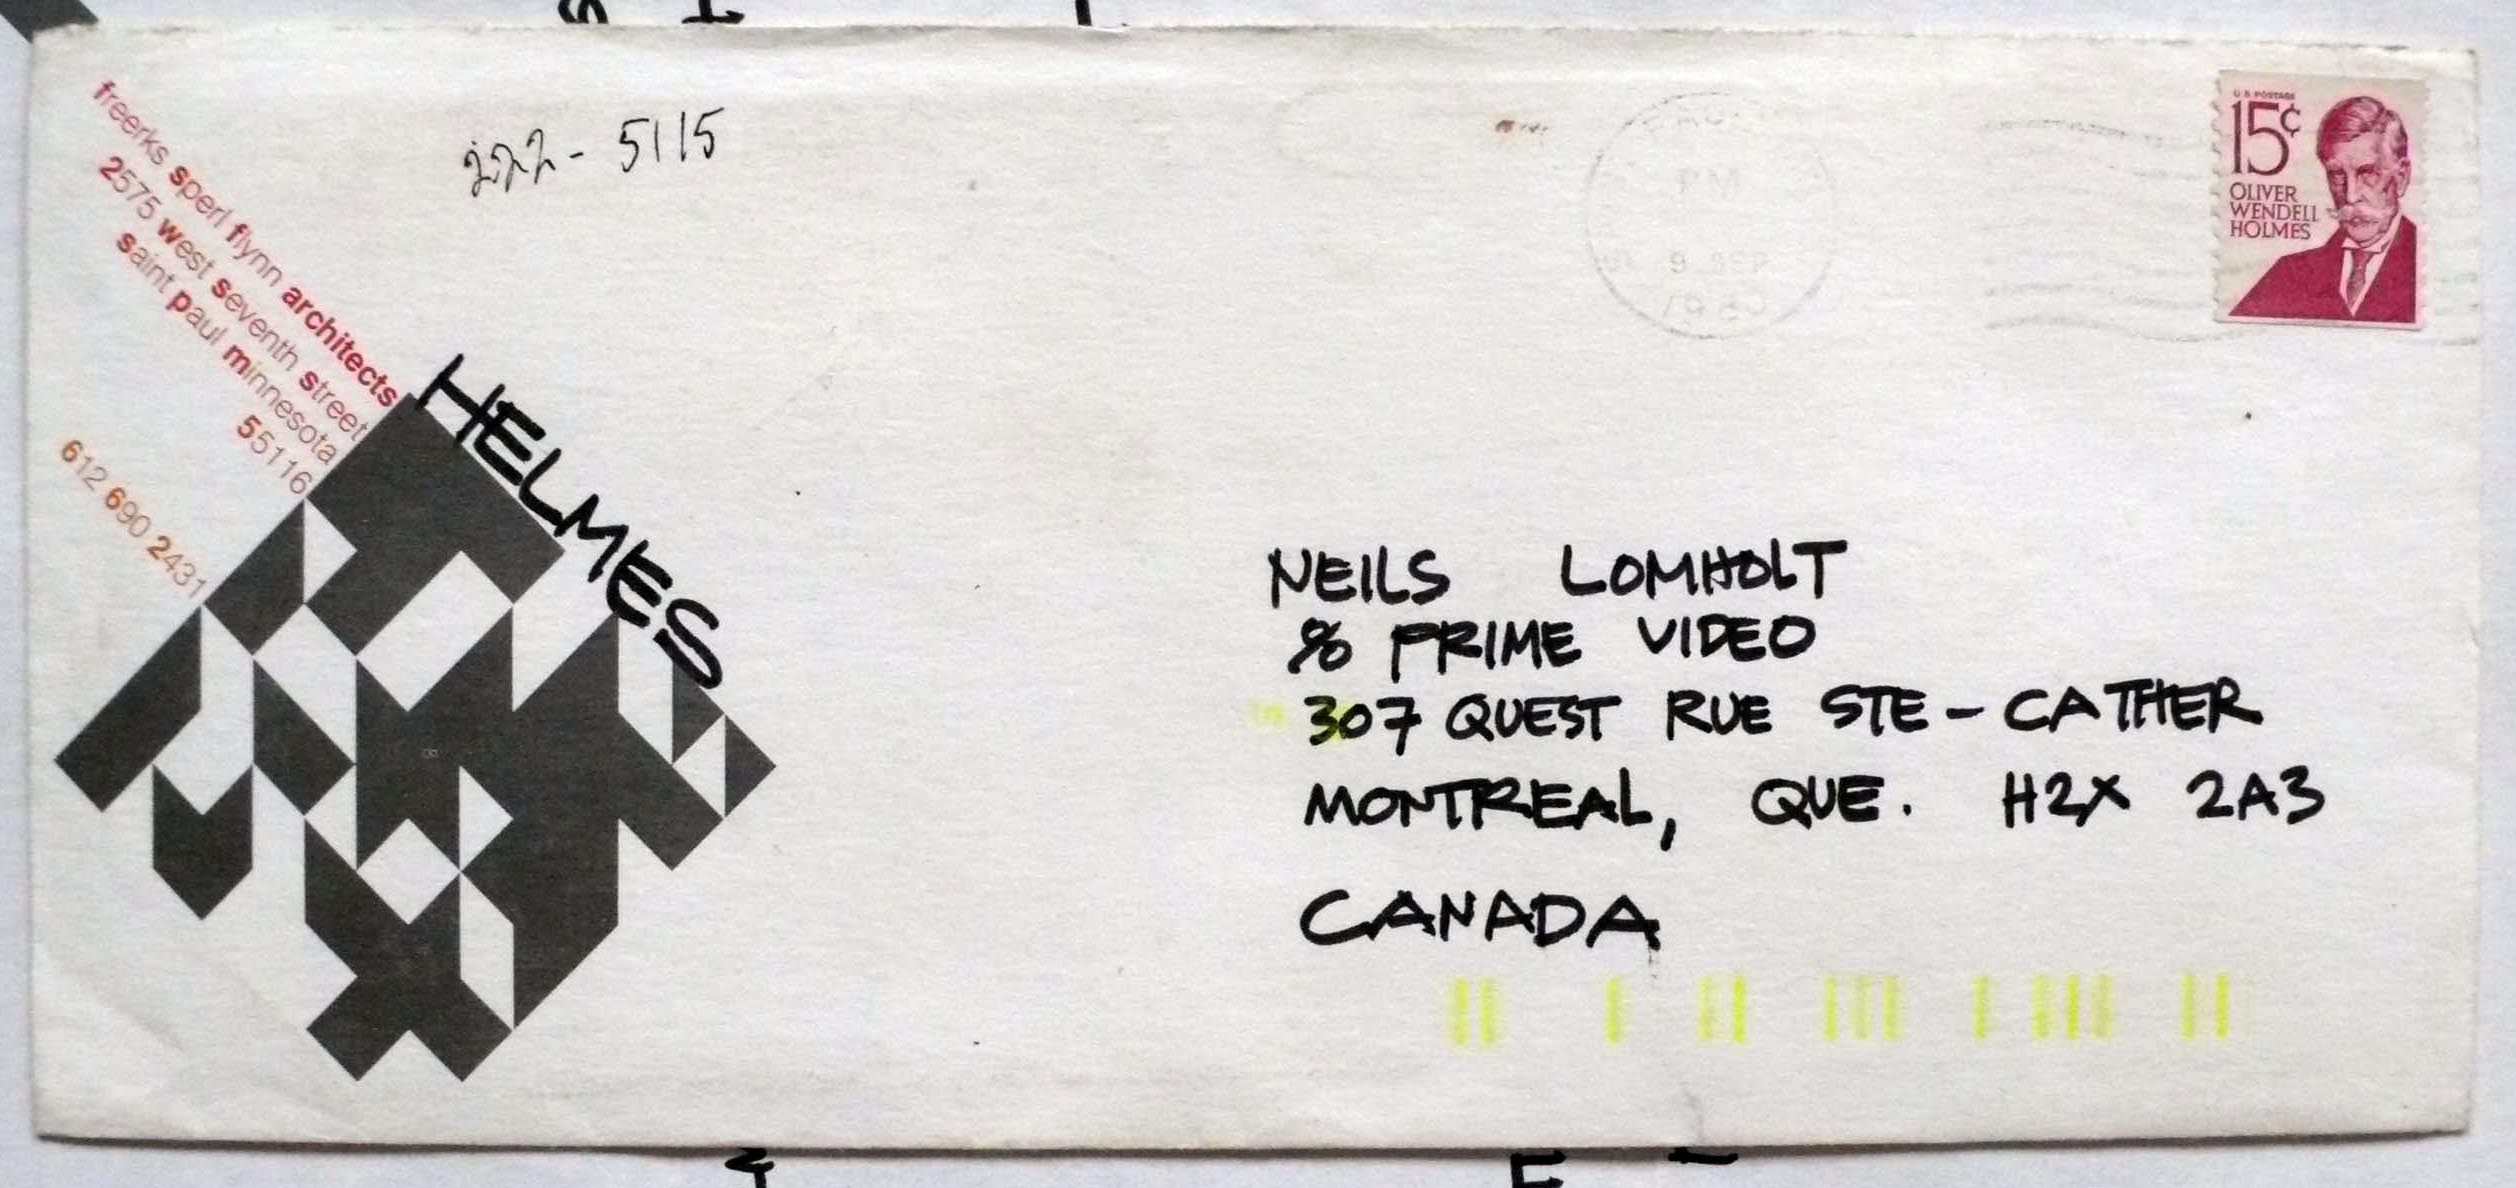 freerks sperl flynn architects
2575 west seventh street
saint paul minnesota
55116
612 690 2431
HELMES
222-5115
U.S. POSTAGE
15¢
OLIVER
WENDELL
HOLMES
NEILS LOMHOLT
% PRIME VIDEO
307 QUEST RUE STE-CATHER
MONTREAL, QUE. H2X 2A3
CANADA